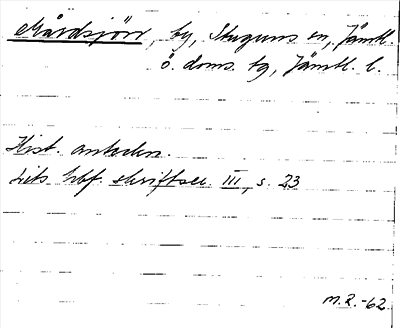 Mårdsjön, by, Stuguns sn, Jämtl.
ö. doms. tg, Jämtl. l.
Hist. anteckn.
Lits hbf. skriftser. III, s. 23
M.R.-62